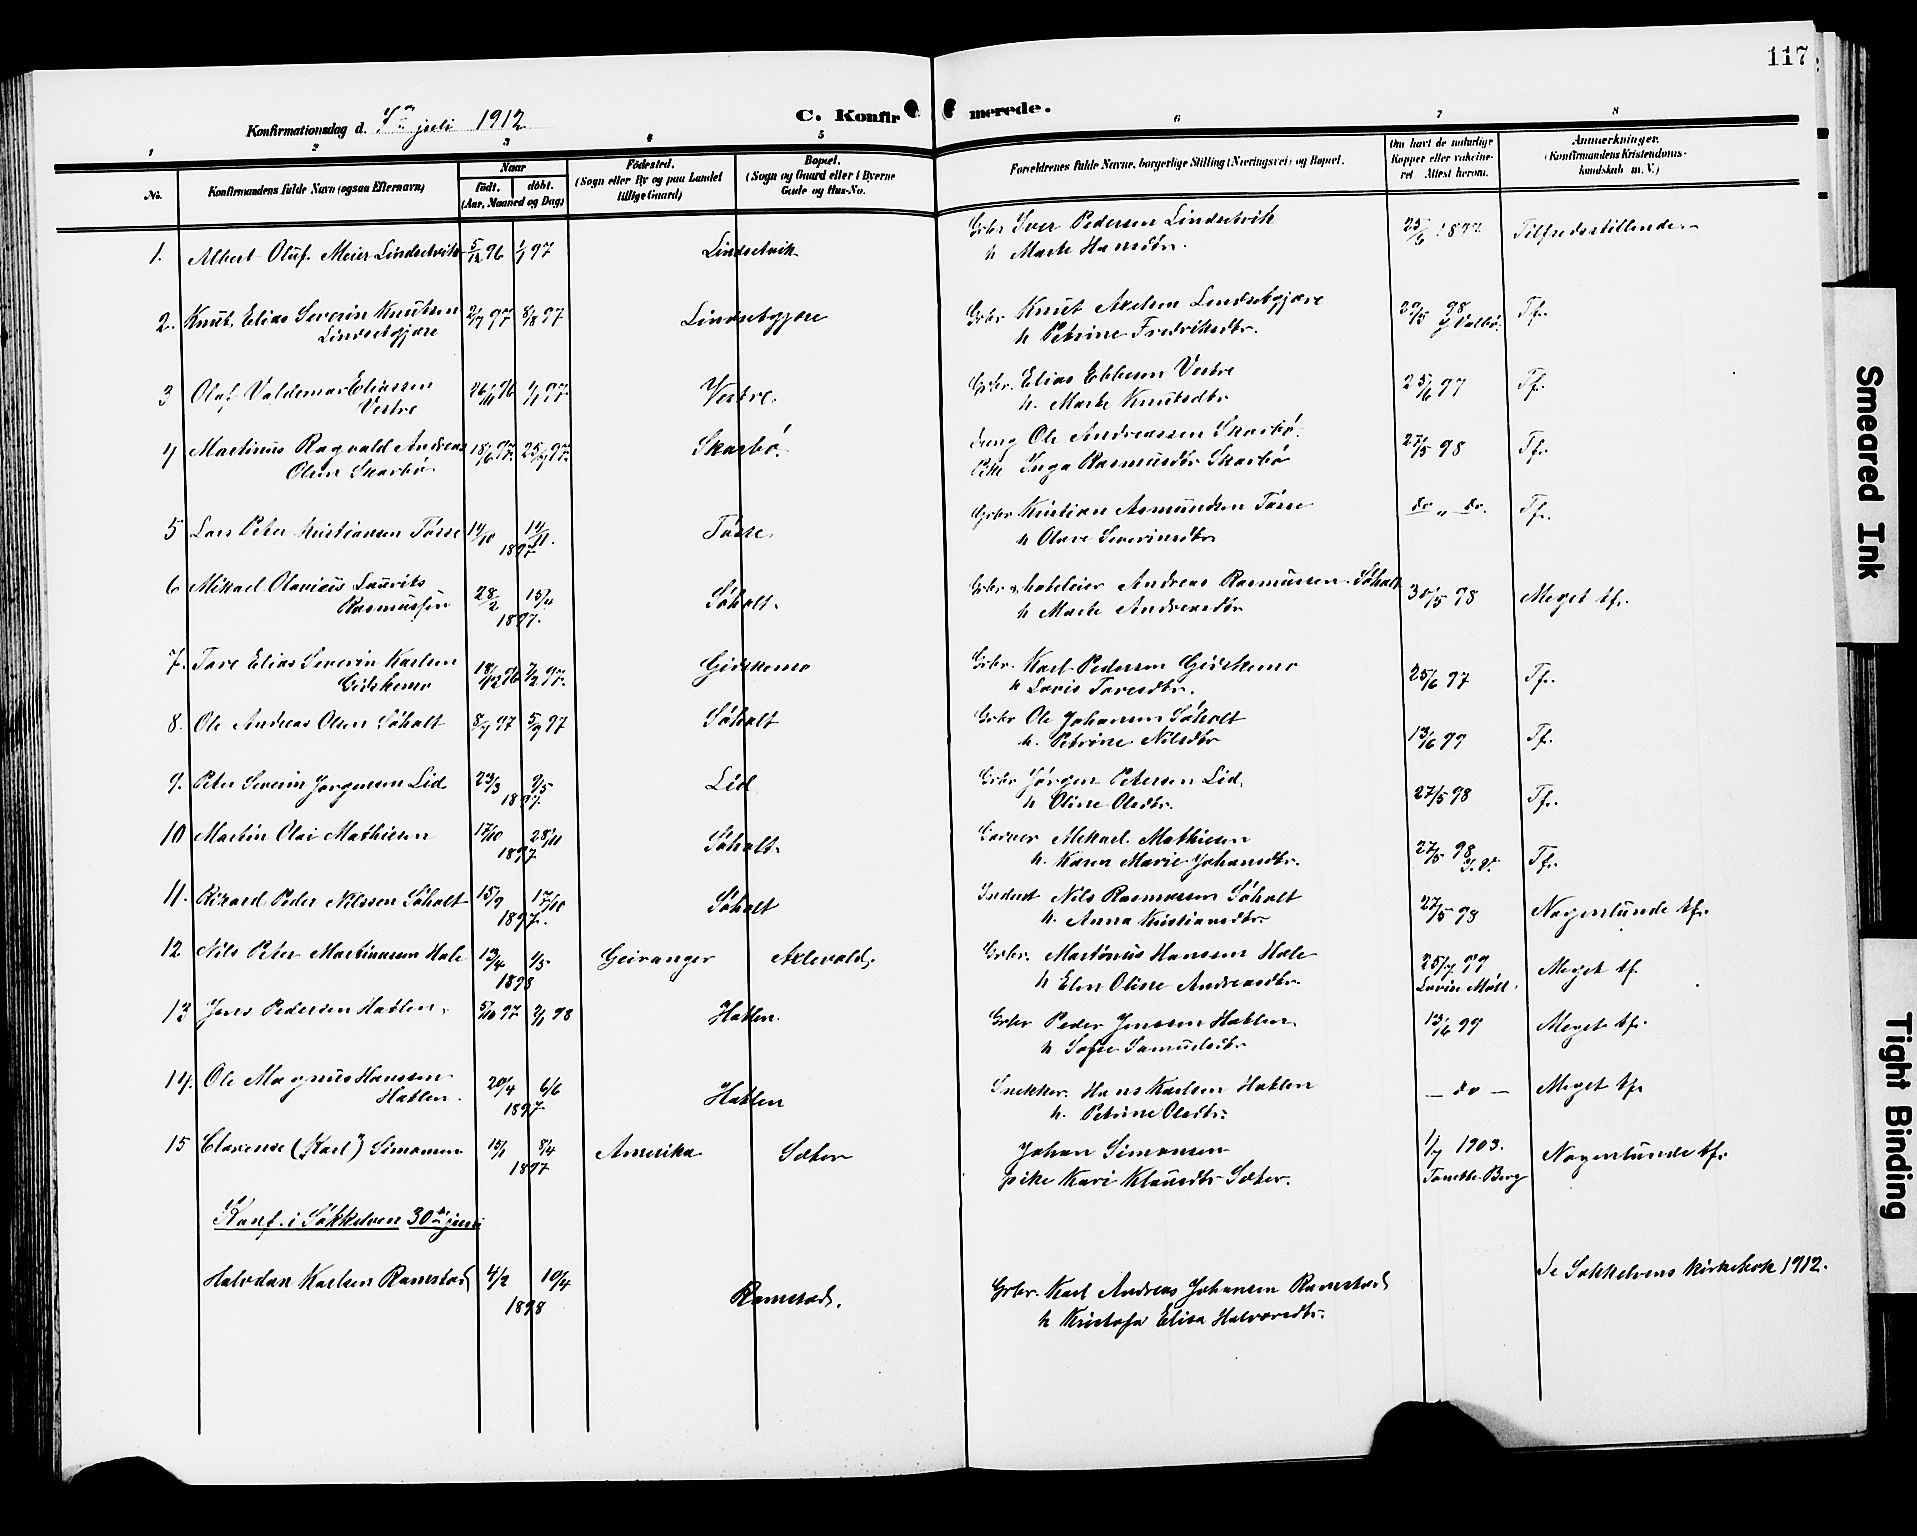 117
Konfirmationsdag d. 7de juli 1912
C. Konfirmerede.
1 2 3 4 5 6 7 8
No.
Konfirmandens fulde Navn (ogsaa Efternavn)
Naar
født. døbt.
(Aar, Maaned og Dag)
Fødested.
(Sogn eller By og paa Landet
tillige Gaard)
Bopæl.
(Sogn og Gaard eller i Byerne
Gade og Hus-No.
Forældrenes fulde Navne, borgerlige Stilling (Næringsvei) og Bopæl.
Om havt de naturlige
Kopper eller vakcine-
ret Attest herom.
Anmærkninger.
(Konfirmandens Kristendoms-
kundskab m. V.)
1. Albert Oluf Meier Lindsetvik 5/12 96 1/1 97 Lindsetvik Grbr Iver Pedersen Lindsetvik 25/6 1897 Tilfredsstillende
h Marte Hansdtr.
2. Knut Elias Severin Knutsen 2/7 97 8/8 97 Lindsetgjære Grbr Knut Axelsen Lindsetgjære 27/5 98 Tf.
Lindsetgjære h Petrine Fredriksdtr.
3 Olaf Valdemar Eliassen 26/11 96 1/1 97 Vestre. Grbr. Elias Ebbesen Vestre 25/6 97 Tf.
Vestre h. Marte Knutsdtr
4 Martinus Ragvald Andreas 18/6 97. 25/7 97. Skarbø. Ung Ole Andreassen Skarbø. 27/5 98 Tf.
Olsen Skarbø Pike Inga Rasmusdtr Skarbø
5 Lars Peter Kristiansen Tøsse 14/10 14/11. Tøsse Grbr Kristian Asmundsen Tøsse do „ do. Tf.
1897 h Olave Severinsdtr
6 Mikael Olavius Laurits 28/2 15/4 Søholt. Grbr & hoteleier Andreas Rasmussen Søholt 30/5 98 Meget tf.
Rasmussen 1897. h Marte Andreasdtr
7. Tore Elias Severin Karlsen 18/12 96 7/2 97. Gidskemo Grbr. Karl Pedersen Gidskemo 25/6 97 Tf.
Gidskemo h Lovis Toresdtr.
8. Ole Andreas Olsen Søholt 8/7 97 5/9 97 Søholt Grbr Ole Johansen Søholt 13/6 99 Tf.
h. Petrine Nilsdtr
9. Peter Severin Jørgensen Lid 23/3 9/5 Lid Grbr Jørgen Petersen Lid. 27/5 98 Tf.
1897. h Oline Olsdtr.
10 Martin Olai Mathiesen 17/10 28/11 Søholt. Garver Mikael Mathiesen 27/5 98 Tf.
1897 h. Karen Marie Johansdtr.
11. Rikard Peder Nilssen Søholt 15/9 17/10 Søholt Inderst Nils Rasmussen Søholt 27/5 98 Nogenlunde tf.
1897. h. Anna Kristiansdtr.
12 Nils Peter Martinussen Hole 13/4 1/5 Geiranger Aklevold. Grbr. Martinus Hanssen Hole 25/7 99 Meget tf
1898 h Elen Oline Andreasdtr.
13 Jens Pedersen Hatlen. 5/10 97 2/1 98 Hatlen. Grbr Peder Jenssen Hatlen 13/6 99 Meget tf.
h Sofie Samuelsdtr.
14. Ole Magnus Hanssen 20/4 6/6 Hatlen Snekker. Hans Karlsen Hatlen — do — Meget tf
Hatlen. 1897 h. Petrine Olsdtr.
15 Clarense ("Karl") Simonsen 15/1 8/4 Amerika Sæter Johan Simonsen 1/7 1903. Nogenlunde tf.
1897 pike Kari Klausdtr Sæter. Tomette Berg
Konf. i Søkkelven 30te juni
Halvdan Karlsen Ramstad 4/2 10/4 Ramstad. Grbr. Karl Andreas Johansen Ramstad Se Søkkelvens kirkebok 1912.
1898 h Kristofa Elisa Halvoredtr.
Smeared Ink
Tight Binding